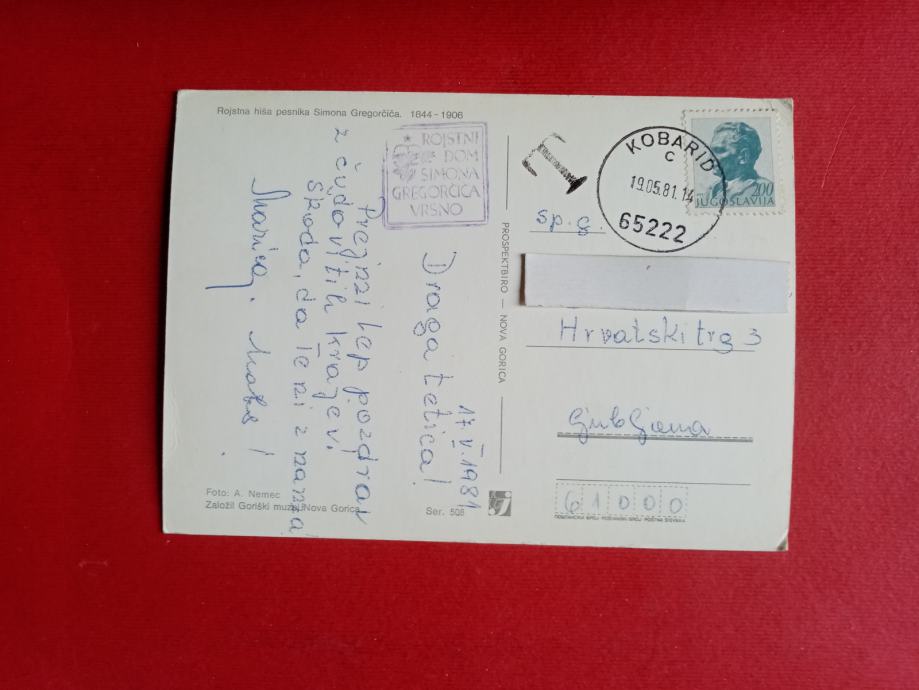 Rojstna hiša pesnika Simona Gregorčiča. 1844-1906
ROJSTNI
DOM
SIMONA
GREGORČIČA
VRSNO
17.V.1981
Draga tetica!
Prejmi lep pozdrav
z čudovitih krajev.
Škoda, da te ni z nama!
Marica,
Foto: A. Nemec
Založil Goriški muzej Nova Gorica
Ser. 508
PROSPEKTBIRO — NOVA GORICA
T
KOBARID
C
19.05.81.14
65222
2.00
JUGOSLAVIJA
Hrvatski trg 3
Ljubljana
61000